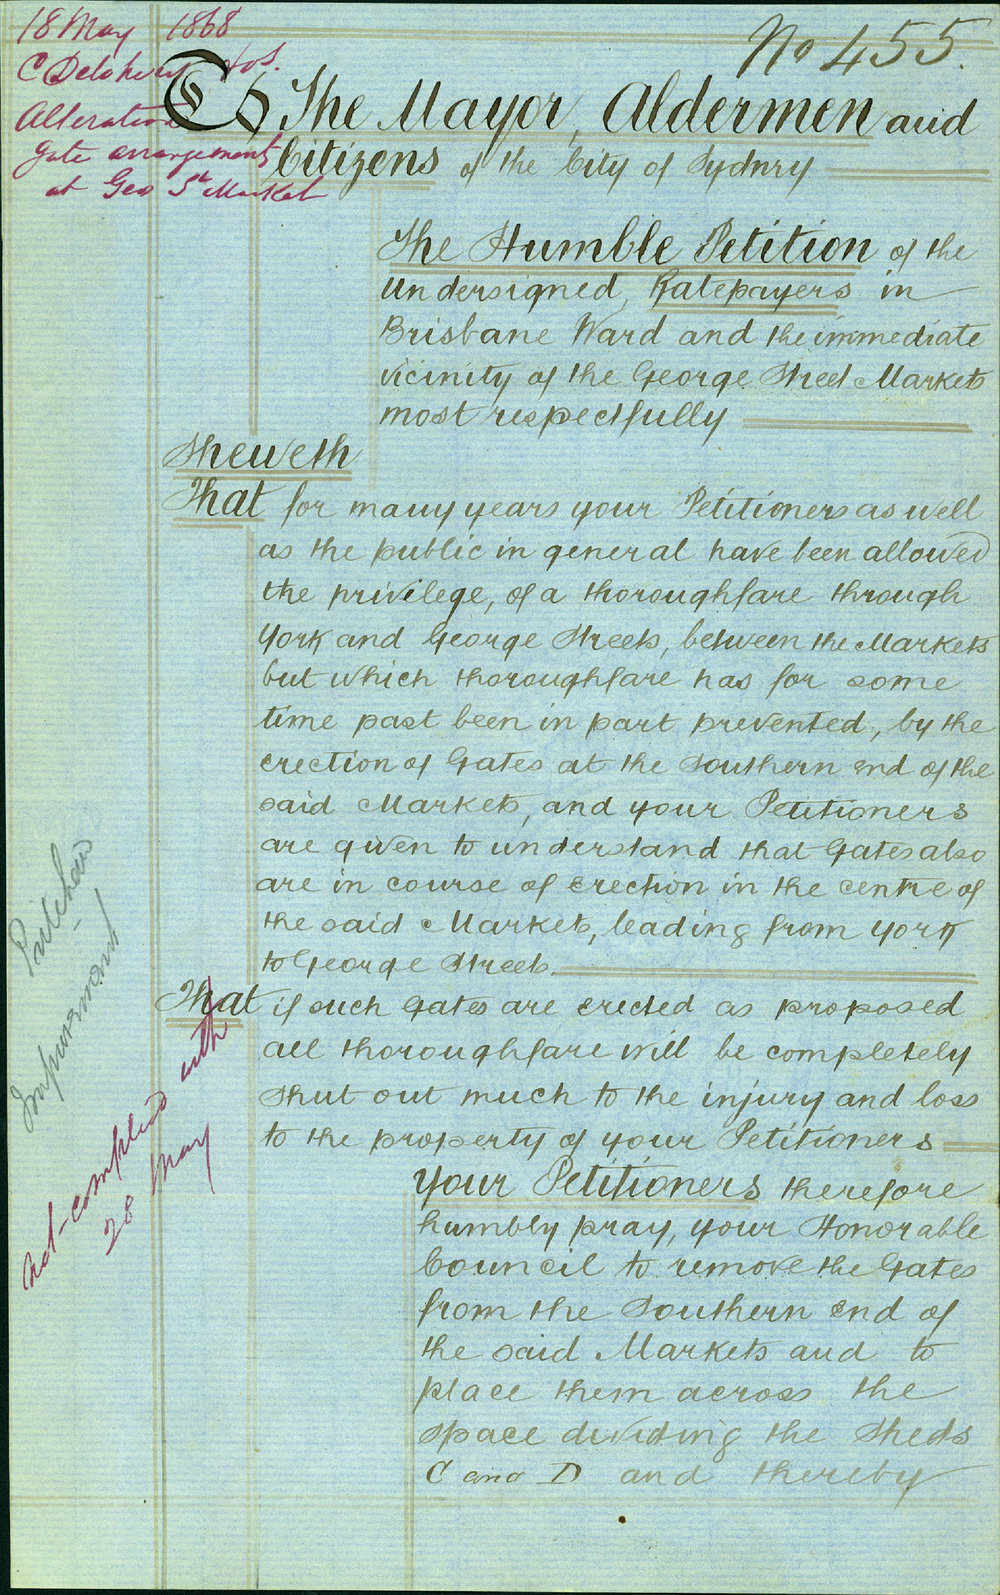 18 May 1868
No 455.
C Delohery &os.
Alteration
gate arrangements
at Geo St Market
To The Mayor, Aldermen and
Citizens of the City of Sydney
The Humble Petition of the
Undersigned, Ratepayers in
Brisbane Ward and the immediate
vicinity of the George Street Markets
most respectfully
Sheweth
That for many years your Petitioners as well
as the public in general have been allowed
the privilege, of a thoroughfare through
York and George Streets, between the Markets
but which thoroughfare has for some
time past been in part prevented, by the
erection of Gates at the Southern end of the
said Markets, and your Petitioners
are given to understand that Gates also
are in course of erection in the centre of
the said Markets, leading from York
to George Streets.
That if such Gates are erected as proposed
all thoroughfare will be completely
shut out much to the injury and loss
to the property of your Petitioners
Your Petitioners therefore
humbly pray, your Honorable
Council to remove the Gates
from the Southern end of
the said Markets and to
place them across the
space dividing the Sheds
C and D and thereby
Improvement
not complied with
28 May